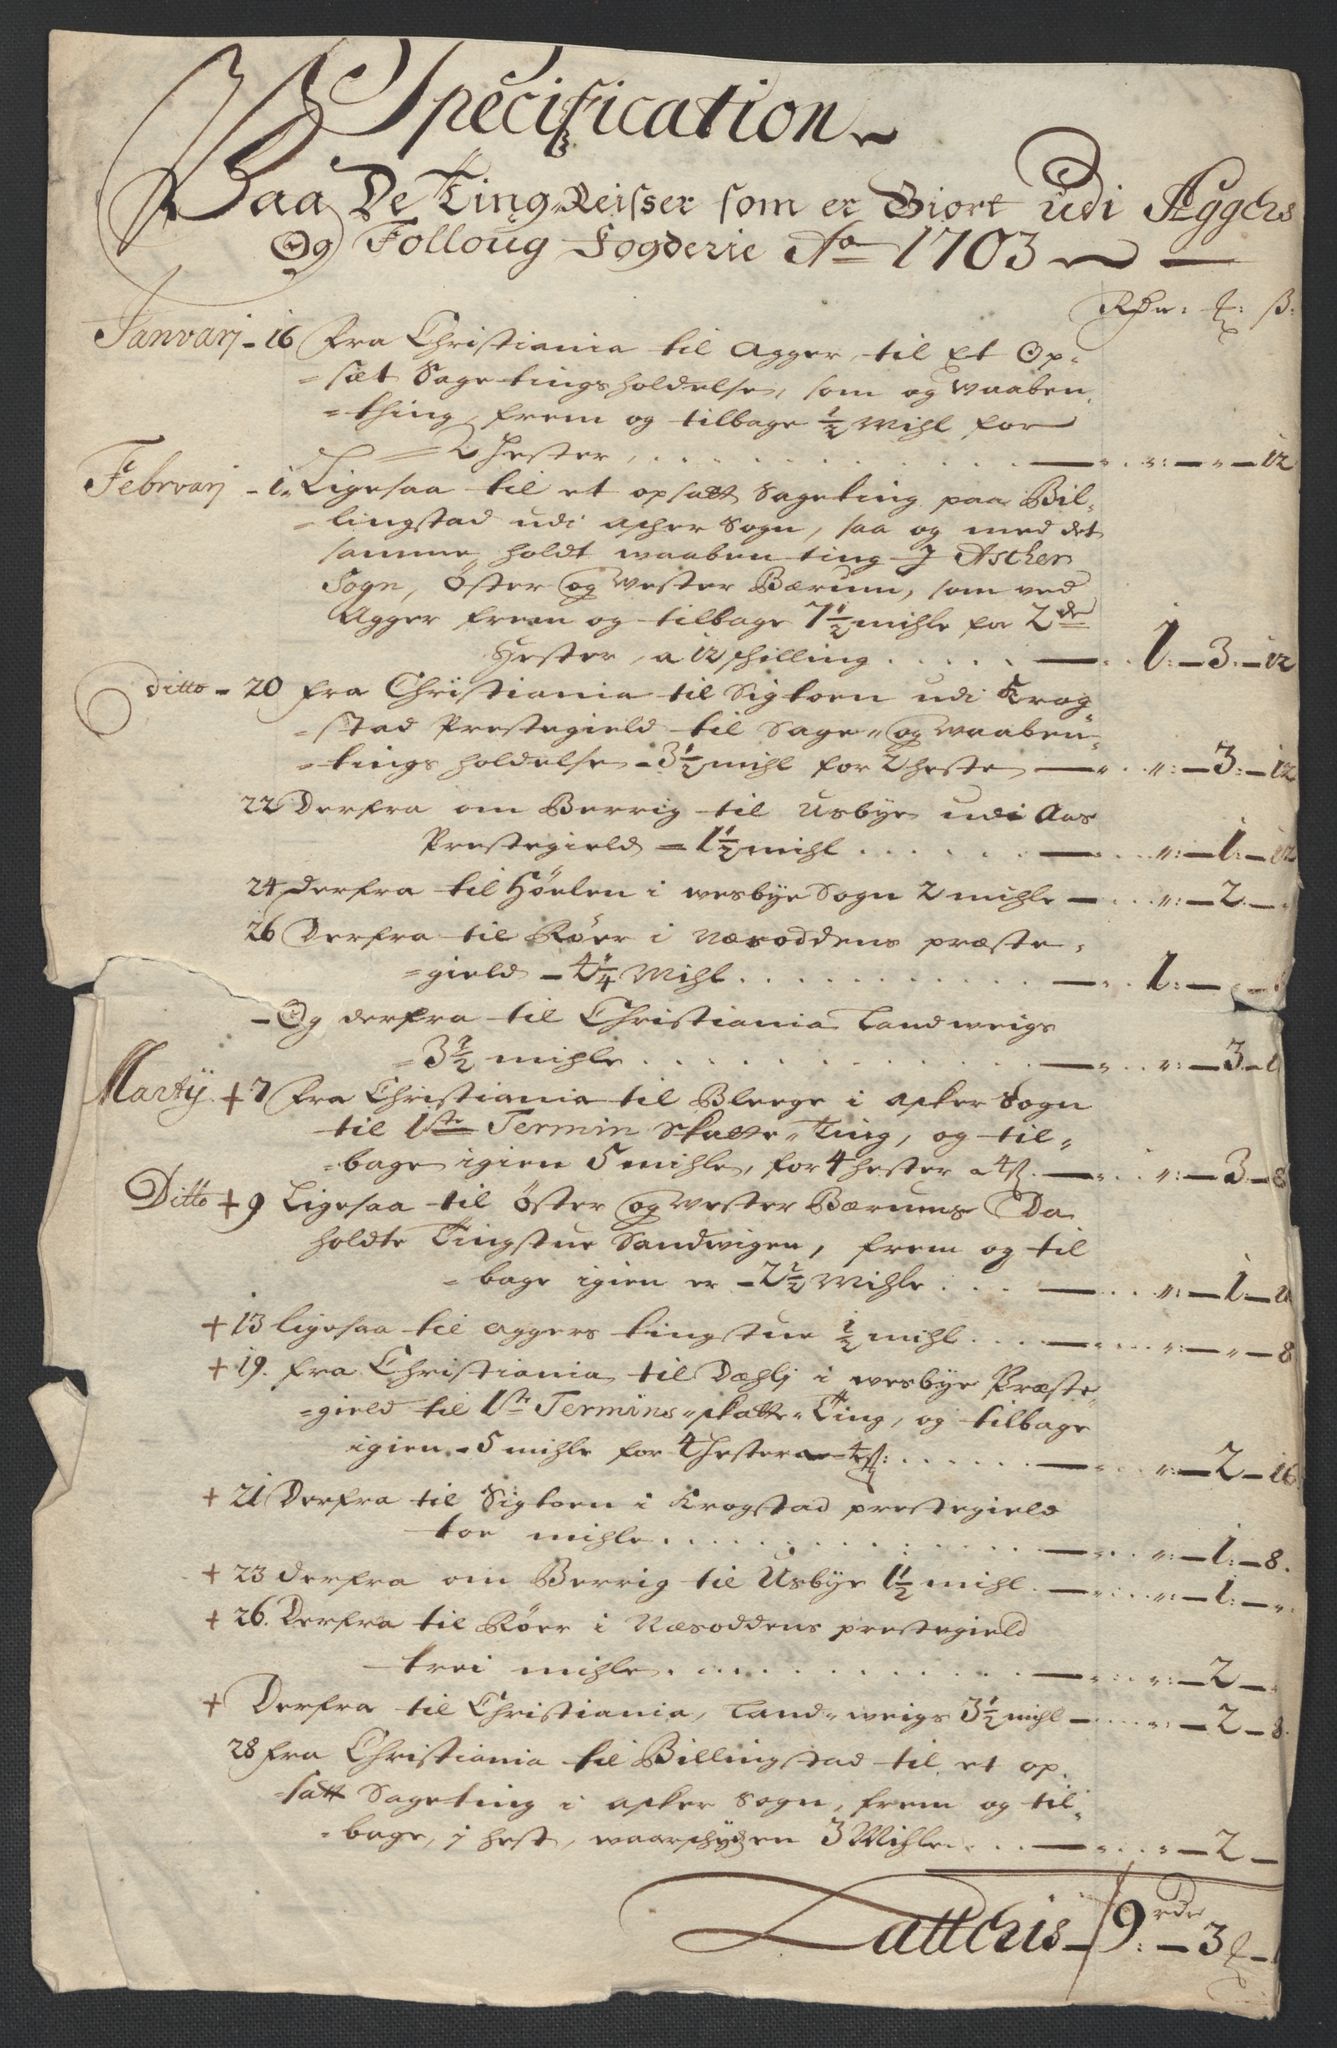 Specification
Paa De Ting Reisser som er Giort udi Aggers
Og Folloug Fogderie Ao 1703
Rdr: ß:
Janvarj - 16 Fra Christiania til Agger, til Et Op-
-sæt Sagetingsholdelse, som og Waaben
-thing, frem og tilbage ½ Mihl for
2 Hester, . . . „ - „ - 12
Februarj - 1. Ligesaa til et opsatt Sageting paa Bil-
-lingstad udi Asker Sogn, saa og med det
samme, holdt waabenting J Ascher
Sogn, Öster og Wester Bærum, som ved
Agger frem og tilbage 7½ mihle for 2de
Hester, a 12 schilling . . . 1: - 3: - 12
Ditto - 20 fra Christiania til Sigtoen udi Krog
-stad Prestegield til Sage- og Waaben-
-tings holdelse - 3½ mihl for 2 heste „: - 3: - 12
22 Derfra om Berrig til Usbye udi Aas
Prestegield - 1½ mihl . . . „: - 1: - 12
24 derfra til Höelen i wesbye Sogn 2 mihle „: - 2. -
26 Derfra til Röer i Næsoddens præste-
-gield - 4¼ Mihl . . . 1: -
- Og derfra til Christiania Landweigs
3½ mihle . . . „: - 3 -
Martij + 7 Fra Christiania til Bleege i Asker Sogn
til 1ste Termin Skatte-Ting, og til-
-bage igien 5 mihle, for 4 hester a 4ß. „: - 3 - 8
Ditto + 9 Ligesaa til Öster og Wester Bærums Da
holdte Tingstue Sandwigen, frem og til
-bage igien er - 2½ Mihle . . . „: - 1: -
+ 13 ligesaa til Aggers tingstue ½ mihl . . . „: - „ - 8
+ 19. fra Christiania til Dæhlj i wesbye Præste-
-gield til 1ste Termins-skatte-Ting, og tilbage
igien - 5 mihle for 4 Hester a 4ß: . . . „: - 2 - 16
+ 21 Derfra til Sigtoen i Krogstad prestegield
toe mihle . . . „: - 1: - 8.
+ 23 derfra om Berrig til Usbye 1½ mihl „: - 1: - „
+ 26. Derfra til Röer i Næsoddens prestegield
trei mihle . . . „: - 2 - „
+ Derfra til Christiania, Land-weigs 3½ mihl „: - 2 - 8.
28 fra Christiania til Billingstad til et op-
-satt Sageting i Asker Sogn, frem og til-
-bage, 1 hest, 3 Mihle . . . „ - 2 -
Latteris 9 rdr - 3